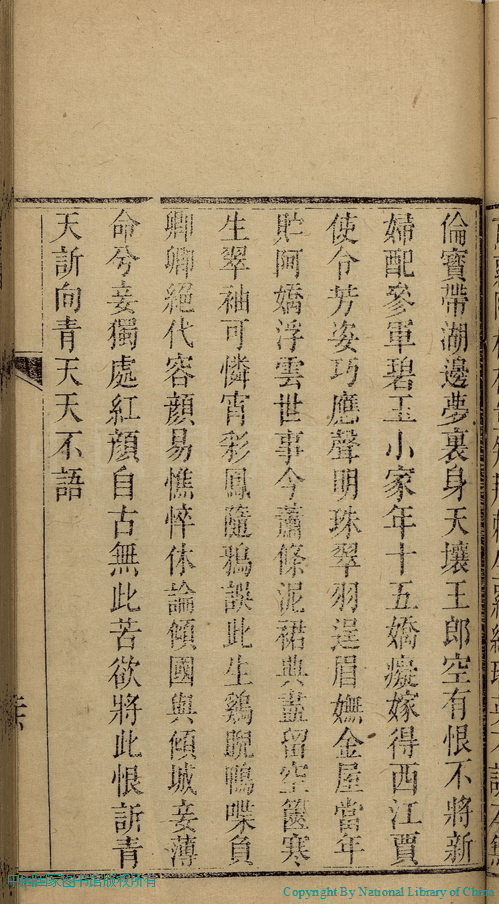 倫寶帶湖邊夢裏身天壤王郎空有恨不將新
婦配參軍碧玉小家年十五嬌癡嫁得西江賈
使令芳姿巧應聲明珠翠羽逞眉嫵金屋當年
貯阿嬌浮雲世事今蕭條泥裙典盡留空篋寒
生翠袖可憐宵彩鳳隨鴉誤此生鷄睨鴨喋負
卿卿絕代容顏易憔悴休論傾國與傾城妾薄
命兮妾獨處紅顏自古無此苦欲將此恨訴青
天訴向青天天不語
中國國家圖書館版權所有
Copyright By National Library of China